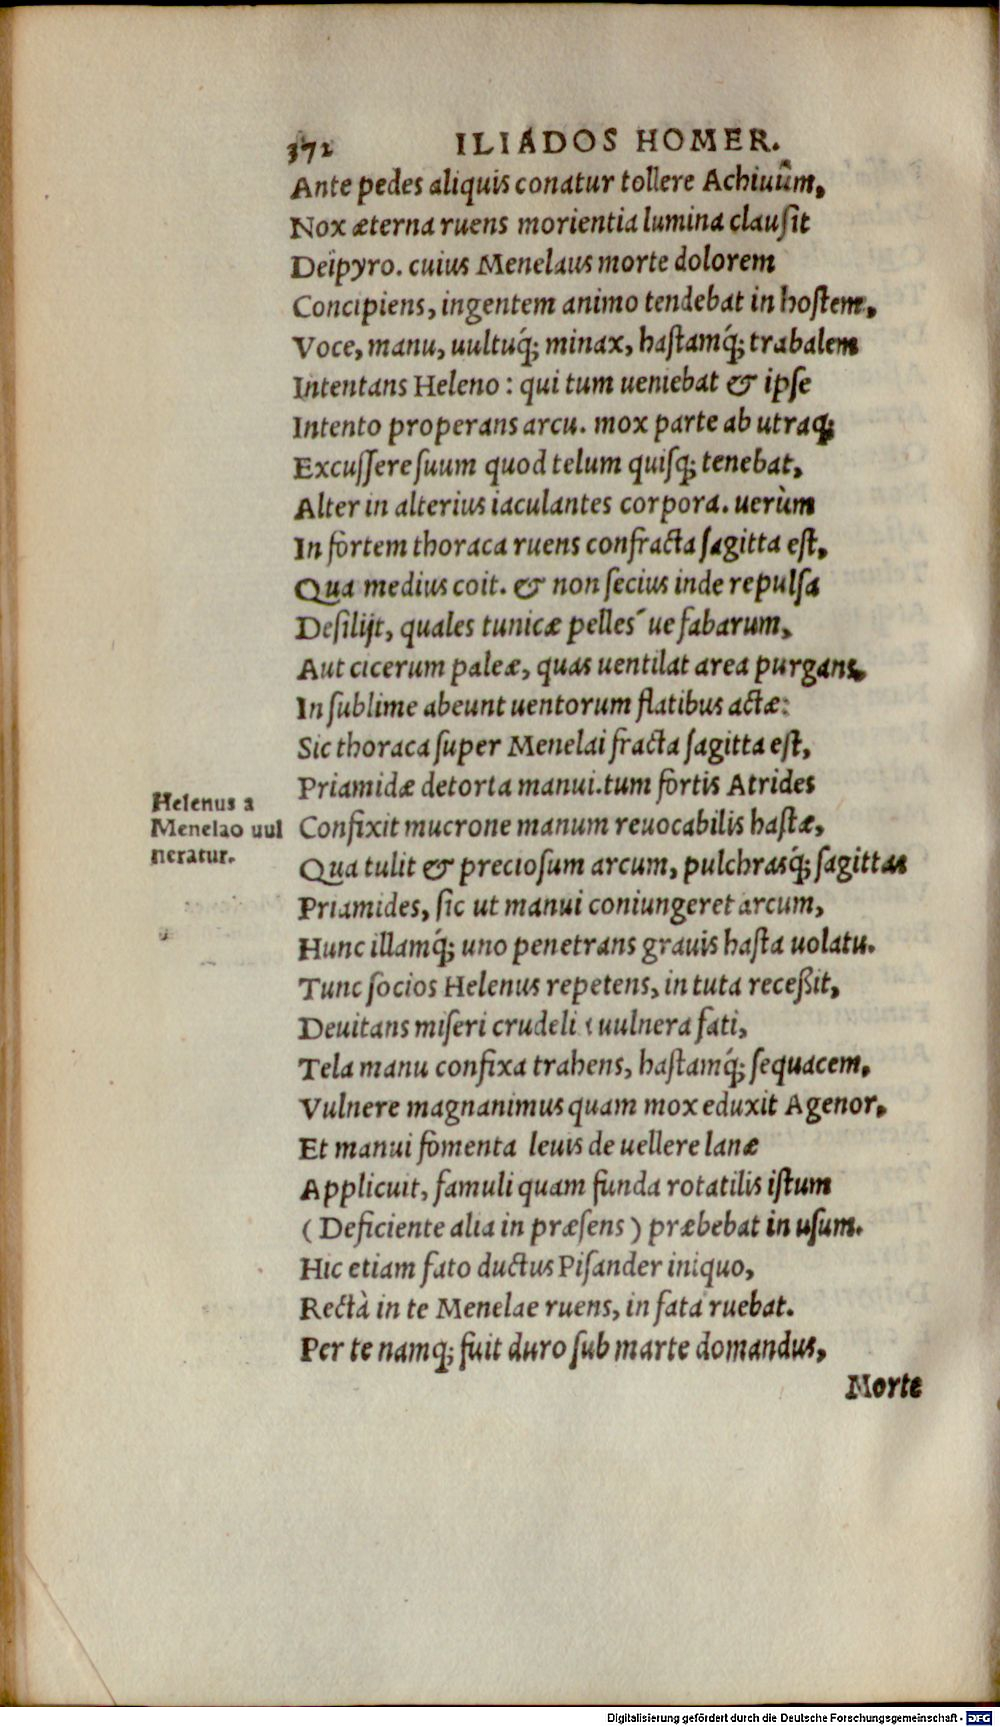 372 ILIADOS HOMER.
Ante pedes aliquis conatur tollere Achiuûm,
Nox æterna ruens morientia lumina clausit
Deïpyro. cuius Menelaus morte dolorem
Concipiens, ingentem animo tendebat in hostem,
Voce, manu, uultuq́; minax, hastamq́; trabalem
Intentans Heleno: qui tum ueniebat & ipse
Intento properans arcu. mox parte ab utraq;
Excussere suum quod telum quisq; tenebat,
Alter in alterius iaculantes corpora. uerùm
In fortem thoraca ruens confracta sagitta est,
Qua medius coit. & non secius inde repulsa
Desilijt, quales tunicæ pelles´ue fabarum,
Aut cicerum paleæ, quas uentilat area purgans,
In sublime abeunt uentorum flatibus actæ:
Sic thoraca super Menelai fracta sagitta est,
Priamidæ detorta manui. tum fortis Atrides
Helenus a
Menelao uul
neratur.
Confixit mucrone manum reuocabilis hastæ,
Qua tulit & preciosum arcum, pulchrasq́; sagittas
Priamides, sic ut manui coniungeret arcum,
Hunc illamq́; uno penetrans grauis hasta uolatu.
Tunc socios Helenus repetens, in tuta receßit,
Deuitans miseri crudelia uulnera fati,
Tela manu confixa trahens, hastamq́; sequacem,
Vulnere magnanimus quam mox eduxit Agenor,
Et manui fomenta leuis de uellere lanæ
Applicuit, famuli quam funda rotatilis istum
(Deficiente alia in præsens) præbebat in usum.
Hic etiam fato ductus Pisander iniquo,
Rectà in te Menelae ruens, in fata ruebat.
Per te namq; fuit duro sub marte domandus,
Morte
Digitalisierung gefördert durch die Deutsche Forschungsgemeinschaft - DFG